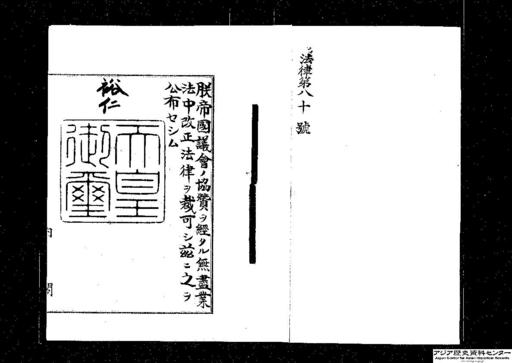 法律第八十號
朕帝國議會ノ協贊ヲ經タル無盡業
法中改正法律ヲ裁可シ茲ニ之ヲ
公布セシム
裕仁
天皇
御璽
内閣
アジア歴史資料センター
Japan Center for Asian Historical Records